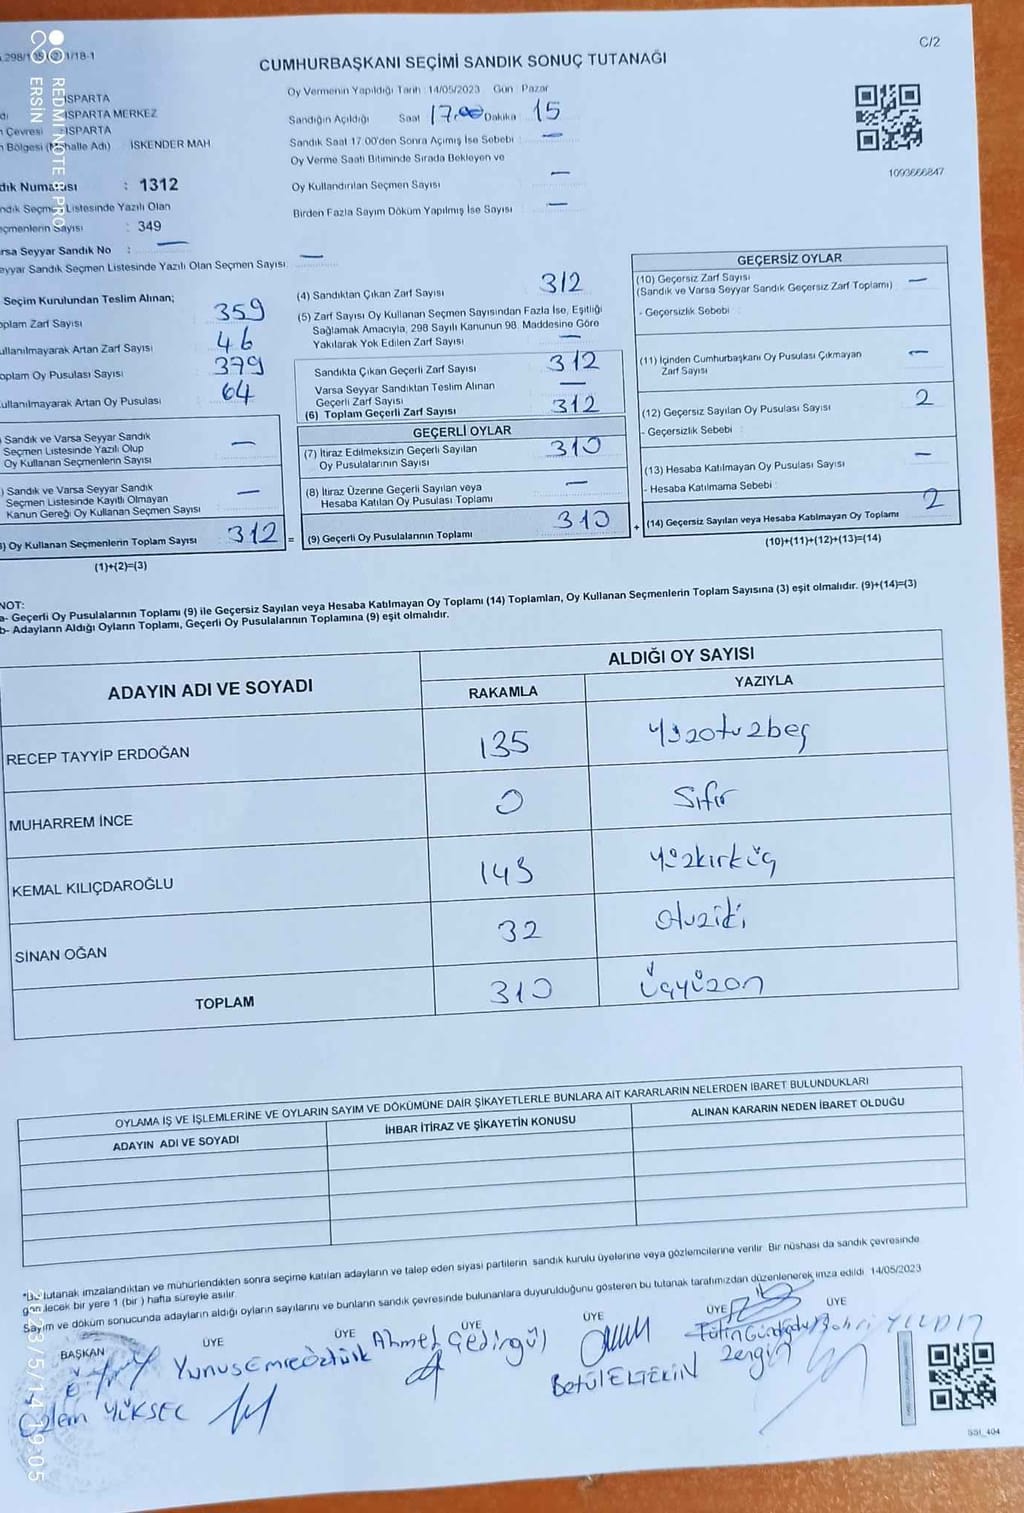 C/2
.298/105 (2) 1/18-1
CUMHURBAŞKANI SEÇİMİ SANDIK SONUÇ TUTANAĞI
ISPARTA
ISPARTA MERKEZ
Çevresi : ISPARTA
Bölgesi (Mahalle Adı) İSKENDER MAH
dık Numarası : 1312
ndık Seçmen Listesinde Yazılı Olan
eçmenlerin Sayısı : 349
rsa Seyyar Sandık No : —
eyyar Sandık Seçmen Listesinde Yazılı Olan Seçmen Sayısı: —
Oy Vermenin Yapıldığı Tarih : 14/05/2023 Gün : Pazar
Sandığın Açıldığı Saat 17.00 Dakika 15
Sandık Saat 17.00'den Sonra Açımış İse Sebebi : —
Oy Verme Saati Bitiminde Sırada Bekleyen ve
Oy Kullandırılan Seçmen Sayısı —
Birden Fazla Sayım Döküm Yapılmış İse Sayısı —
1093666847
Seçim Kurulundan Teslim Alınan;
oplam Zarf Sayısı 359
ullanılmayarak Artan Zarf Sayısı 46
oplam Oy Pusulası Sayısı 379
ullanılmayarak Artan Oy Pusulası 64
) Sandık ve Varsa Seyyar Sandık
Seçmen Listesinde Yazılı Olup
Oy Kullanan Seçmenlerin Sayısı —
) Sandık ve Varsa Seyyar Sandık
Seçmen Listesinde Kayıtlı Olmayan
Kanun Gereği Oy Kullanan Seçmen Sayısı —
) Oy Kullanan Seçmenlerin Toplam Sayısı 312
(1)+(2)=(3)
(4) Sandıktan Çıkan Zarf Sayısı 312
(5) Zarf Sayısı Oy Kullanan Seçmen Sayısından Fazla İse, Eşitliği
Sağlamak Amacıyla, 298 Sayılı Kanunun 98. Maddesine Göre
Yakılarak Yok Edilen Zarf Sayısı —
Sandıkta Çıkan Geçerli Zarf Sayısı 312
Varsa Seyyar Sandıktan Teslim Alınan
Geçerli Zarf Sayısı —
(6) Toplam Geçerli Zarf Sayısı 312
GEÇERLİ OYLAR
(7) İtiraz Edilmeksizin Geçerli Sayılan
Oy Pusulalarının Sayısı 310
(8) İtiraz Üzerine Geçerli Sayılan veya
Hesaba Katılan Oy Pusulası Toplamı —
= (9) Geçerli Oy Pusulalarının Toplamı 310
GEÇERSİZ OYLAR
(10) Geçersiz Zarf Sayısı —
(Sandık ve Varsa Seyyar Sandık Geçersiz Zarf Toplamı)
- Geçersizlik Sebebi :
(11) İçinden Cumhurbaşkanı Oy Pusulası Çıkmayan
Zarf Sayısı —
(12) Geçersiz Sayılan Oy Pusulası Sayısı 2
- Geçersizlik Sebebi :
(13) Hesaba Katılmayan Oy Pusulası Sayısı —
- Hesaba Katılmama Sebebi :
+ (14) Geçersiz Sayılan veya Hesaba Katılmayan Oy Toplamı 2
(10)+(11)+(12)+(13)=(14)
NOT:
a- Geçerli Oy Pusulalarının Toplamı (9) ile Geçersiz Sayılan veya Hesaba Katılmayan Oy Toplamı (14) Toplamları, Oy Kullanan Seçmenlerin Toplam Sayısına (3) eşit olmalıdır. (9)+(14)=(3)
b- Adayların Aldığı Oyların Toplamı, Geçerli Oy Pusulalarının Toplamına (9) eşit olmalıdır.
ADAYIN ADI VE SOYADI ALDIĞI OY SAYISI
RAKAMLA YAZIYLA
RECEP TAYYİP ERDOĞAN 135 Yüzotuzbeş
MUHARREM İNCE 0 Sıfır
KEMAL KILIÇDAROĞLU 143 Yüzkırküç
SİNAN OĞAN 32 Otuziki
TOPLAM 310 Üçyüzon
OYLAMA İŞ VE İŞLEMLERİNE VE OYLARIN SAYIM VE DÖKÜMÜNE DAİR ŞİKAYETLERLE BUNLARA AİT KARARLARIN NELERDEN İBARET BULUNDUKLARI
ADAYIN ADI VE SOYADI İHBAR İTİRAZ VE ŞİKAYETİN KONUSU ALINAN KARARIN NEDEN İBARET OLDUĞU
*Bu tutanak imzalandıktan ve mühürlendikten sonra seçime katılan adayların ve talep eden siyasi partilerin sandık kurulu üyelerine veya gözlemcilerine verilir. Bir nüshası da sandık çevresinde
görülecek bir yere 1 (bir) hafta süreyle asılır.
Sayım ve döküm sonucunda adayların aldığı oyların sayılarını ve bunların sandık çevresinde bulunanlara duyurulduğunu gösteren bu tutanak tarafımızdan düzenlenerek imza edildi. 14/05/2023
BAŞKAN ÜYE ÜYE ÜYE ÜYE ÜYE ÜYE
Özlem YÜKSEC
Yunus Emre Öztürk
Ahmet Gedirgül
Betül ELTEKİN
Zengin
YILDIZ
SSI_404
REDMI NOTE 8 PRO
ERSİN
2023/5/14 19:05